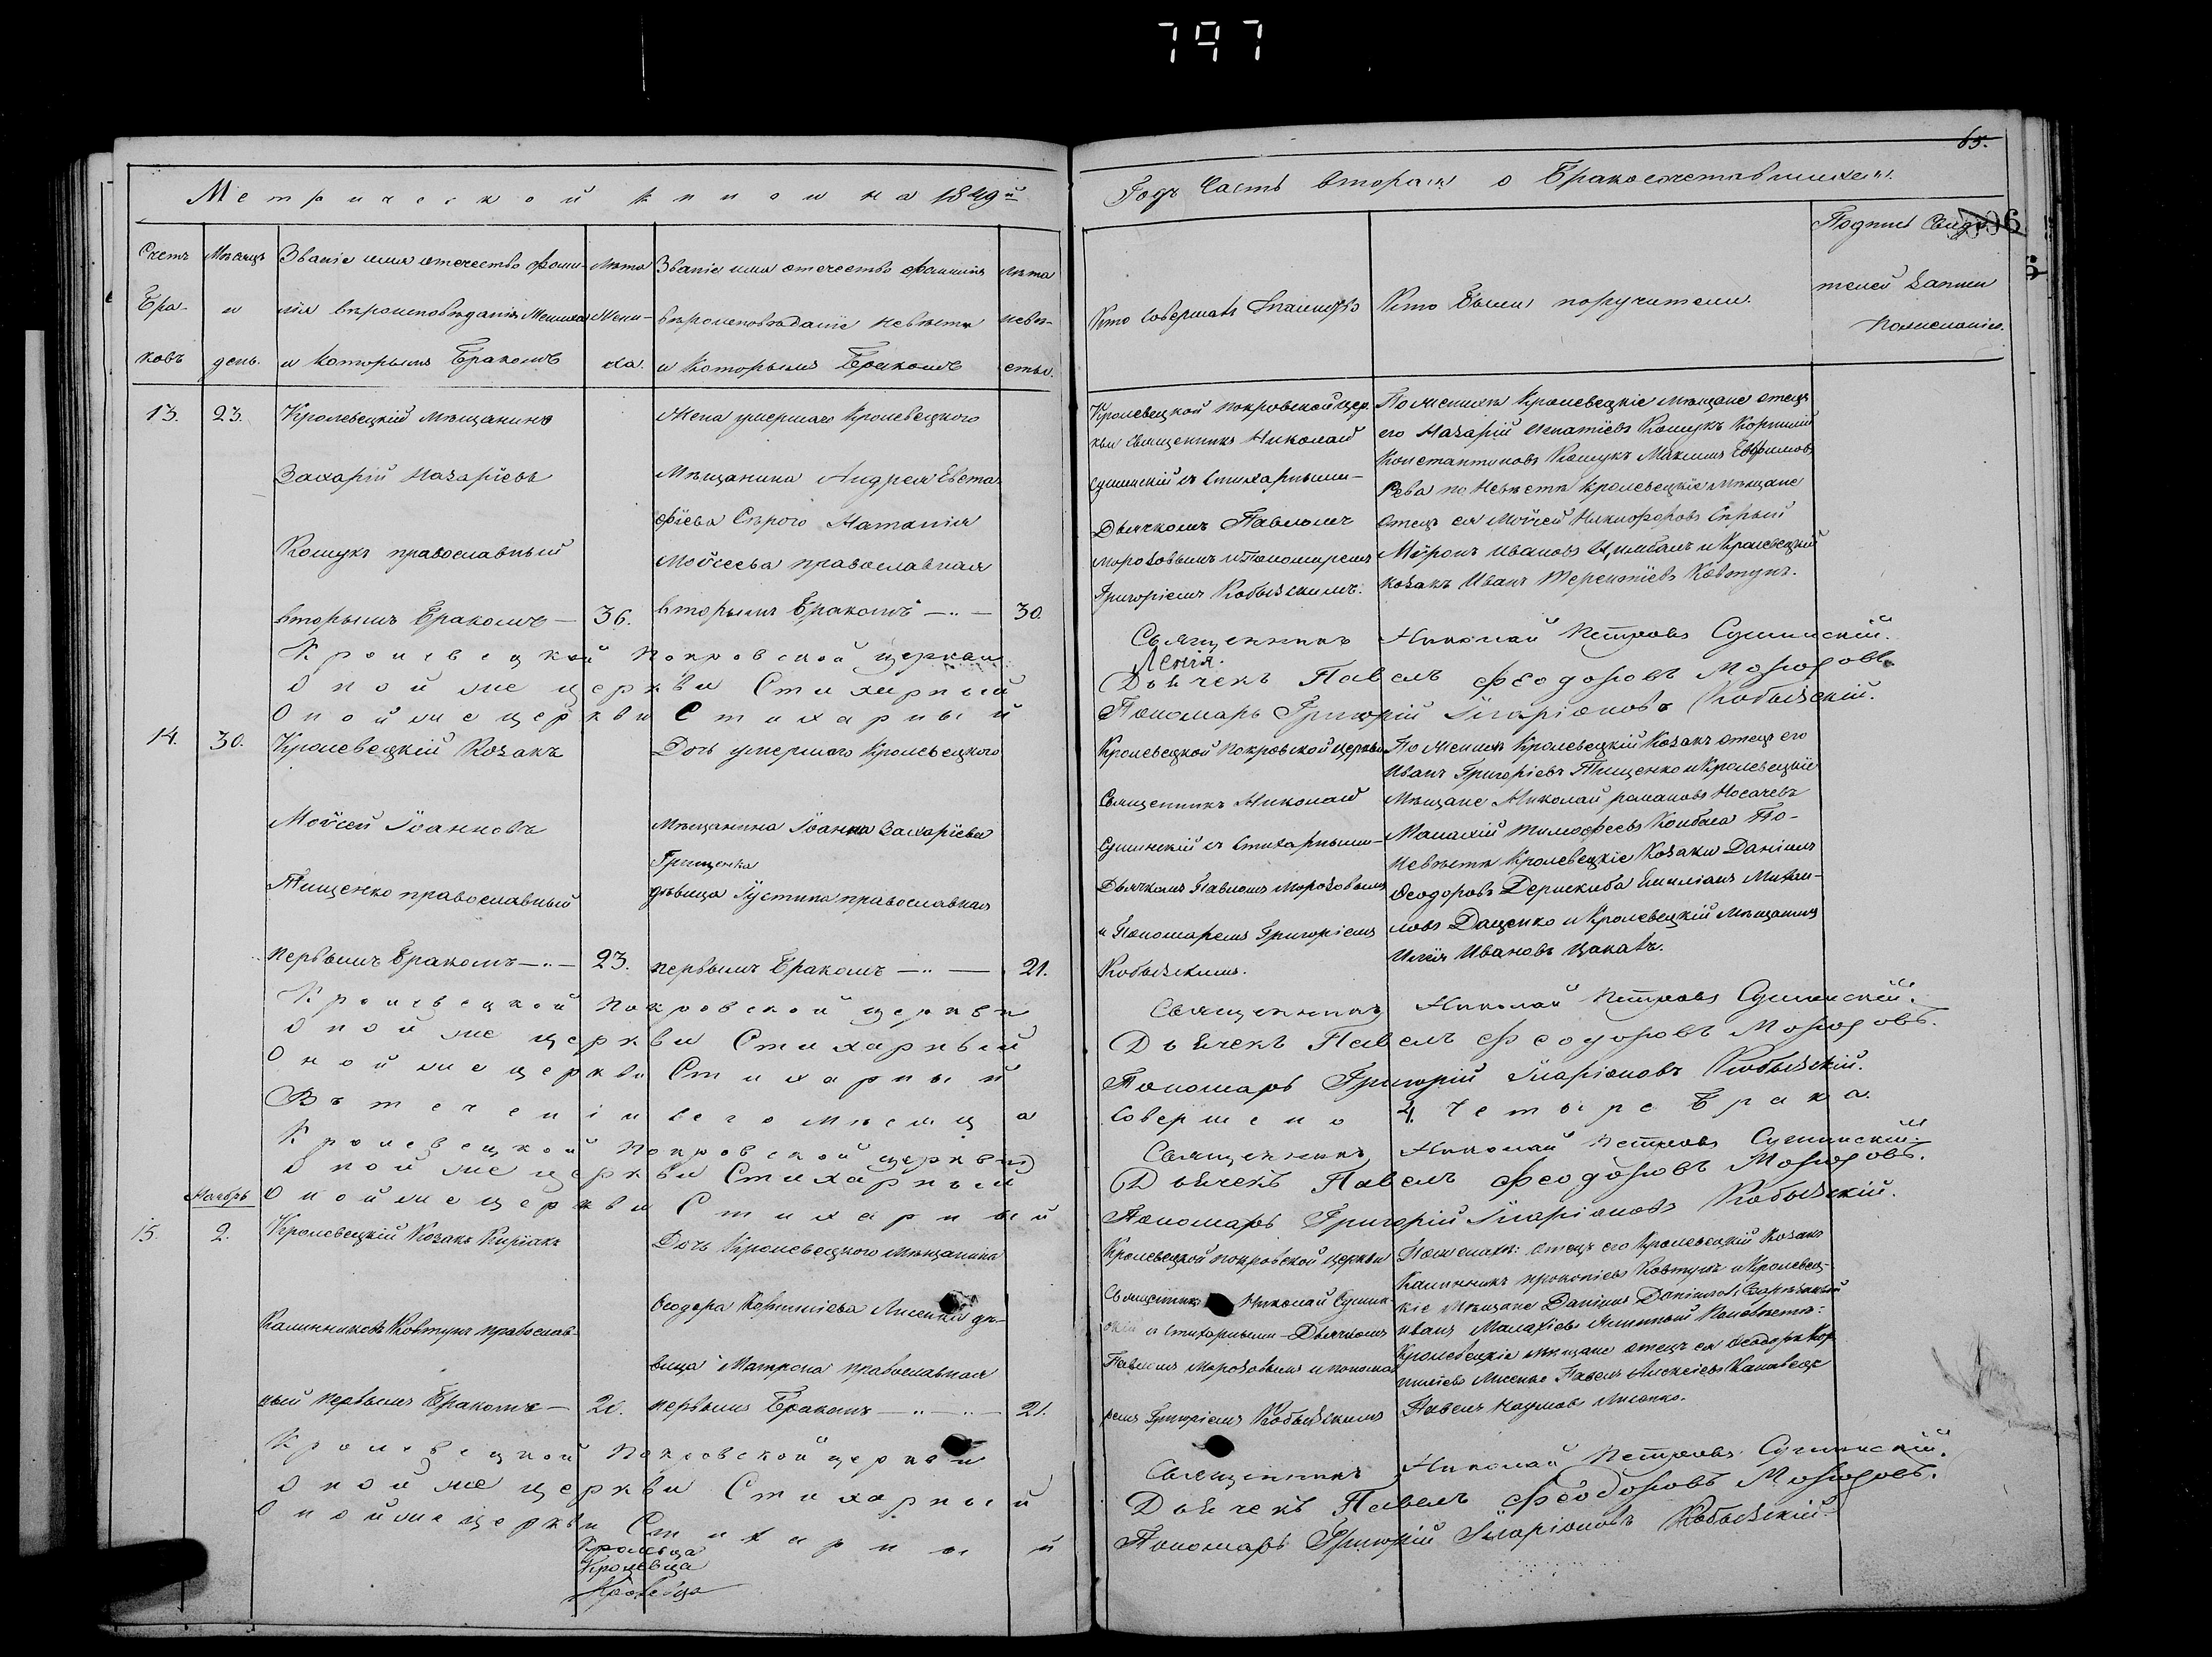 797
65.
Метрической книги на 1849й
Годъ Часть вторая о Бракосочетавшихся.
Счетъ
Бра-
ковъ
Мѣсяцъ
и
день.
Званіе имя отечество фами-
лія вѣроисповѣданія Жениха
и которымъ Бракомъ
Лѣта
Жени-
ха.
Званіе имя отечество фамилія
вѣроисповѣданіе невѣсты
и которымъ Бракомъ
Лѣта
невѣ-
сты.
Кто совершалъ Таинство
Кто были поручители.
Подписъ Свидѣ
телей Записи
13.
23.
Кролевецкій Мѣщанинъ
Захарій Назаріевъ
Кошукъ православный
вторымъ Бракомъ —
36.
Жена умершаго Кролевецкого
Мѣщанина Андрея Евста
фіева Сѣрого Наталія
Мойсеева православная
вторымъ Бракомъ —„—
30.
Кролевецкой Покровской цер.
кви Священникъ Николай
Сушинскій съ Стихарными —
Дьячкомъ Павломъ
Морозовымъ и Пономаремъ
Григоріемъ Кобызскимъ.
По женихѣ Кролевецкіе Мѣщане отецъ
его Назарій Игнатіевъ Кошукъ Корнилій
Константиновъ Кошукъ Максимъ Евфимовъ
Рева по Невѣстѣ Кролевецкіе Мѣщане
Отецъ ея Мойсей Никифоровъ Сѣрый
Миронъ Ивановъ Цимбалъ и Кролевецкій
козакъ Иванъ Терентіевъ Ковтунъ.
Кролевецкой Покровской церкви
Священникъ Николай Петровъ Сушинскій.
Оной же церкви Стихарный
Дьячекъ Павелъ Феодоровъ Морозовъ.
Оной же церкви Стихарный
Пономарь Григорій Иларіоновъ Кобызскій.
14.
30.
Кролевецкій Козакъ
Мойсей Іоанновъ
Тищенко православный
первымъ Бракомъ —„—
23.
Дочь умершаго Кролевецкого
Мѣщанина Іоанна Захаріева
Грищенка
дѣвица Іустина православная
первымъ Бракомъ —„—
21.
Кролевецкой Покровской церкви
Священникъ Николай
Сушинскій съ Стихарными —
Дьячкомъ Павломъ Морозовымъ
и Пономаремъ Григоріемъ
Кобызскимъ.
По Женихѣ Кролевецкій Козакъ отецъ его
Иванъ Григоріевъ Тищенко и Кролевецкіе
Мѣщане Николай Романовъ Носачевъ
Малахій Тимофеевъ Конбаса По-
Невѣстѣ Кролевецкіе Козаки Даніилъ
Феодоровъ Держиба Емиліанъ Михаи-
ловъ Даценко и Кролевецкій Мѣщанинъ
Илія Ивановъ Цакавъ.
Кролевецкой Покровской церкви
Священникъ Николай Петровъ Сушинскій.
Оной же церкви Стихарный
Дьячекъ Павелъ Феодоровъ Морозовъ.
Оной же церкви Стихарный
Пономарь Григорій Иларіоновъ Кобызскій.
Въ теченіи сего мѣсяца
Совершено 4. Четыре Брака.
Кролевецкой Покровской церкви
Священникъ Николай Петровъ Сушинскій.
Оной же церкви Стихарный
Дьячекъ Павелъ Феодоровъ Морозовъ.
Оной же церкви Стихарный
Пономарь Григорій Иларіоновъ Кобызскій.
Ноябрь
15.
2.
Кролевецкій Козакъ Киріакъ
Калинниковъ Ковтунъ православ-
ный первымъ Бракомъ —
20.
Дочь Кролевецкого Мѣщанина
Феодора Корниліева Лисенка дѣ-
вица Матрона православная
первымъ Бракомъ —„—„—
21.
Кролевецкой Покровской церкви
Священникъ Николай Сушин-
скій съ Стихарными — Дьячкомъ
Павломъ Морозовымъ и понома
ремъ Григоріемъ Кобызскимъ
По женихѣ: отецъ его Кролевецкій Козакъ
Калинникъ Прокопіевъ Ковтунъ и Кролевец-
кіе Мѣщане Даніилъ Даніиловъ
Иванъ Малахіевъ По невѣстѣ:
Кролевецкіе мѣщане отецъ ея Феодоръ Кор
ниліевъ Лисенко Павелъ Алексіевъ Канавецъ
Павелъ Наумовъ Лисенко.
Кролевецкой Покровской церкви
Священникъ Николай Петровъ Сушинскій.
Оной же церкви Стихарный
Дьячекъ Павелъ Феодоровъ Морозовъ.
Оной же церкви Стихарный
Пономарь Григорій Иларіоновъ Кобызскій.
Кролевца
Кролевца
Кролевца